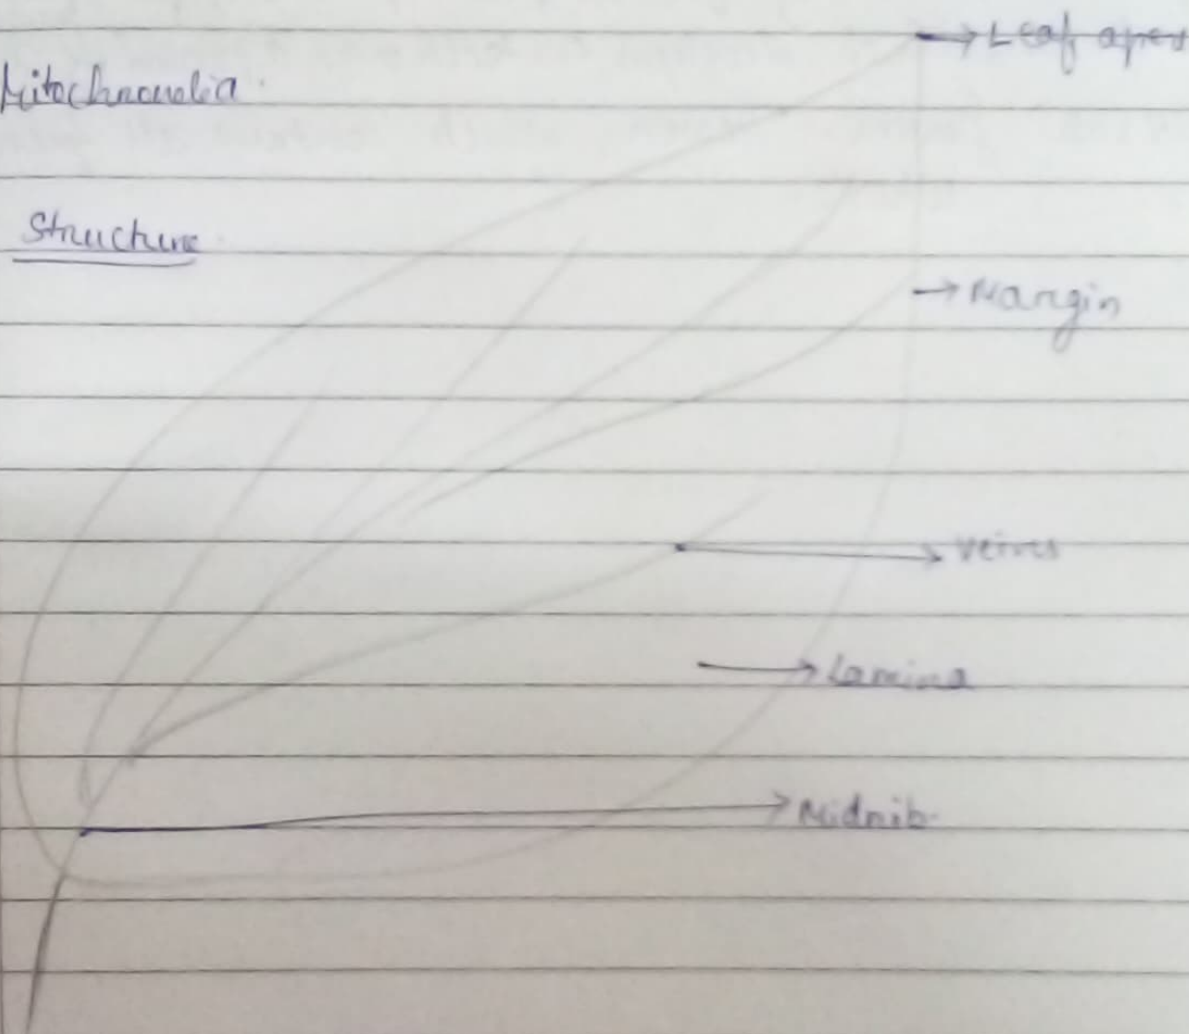 Leaf apex
Mitochnondia
Structure
Margin
Veins
Lamina
Midrib